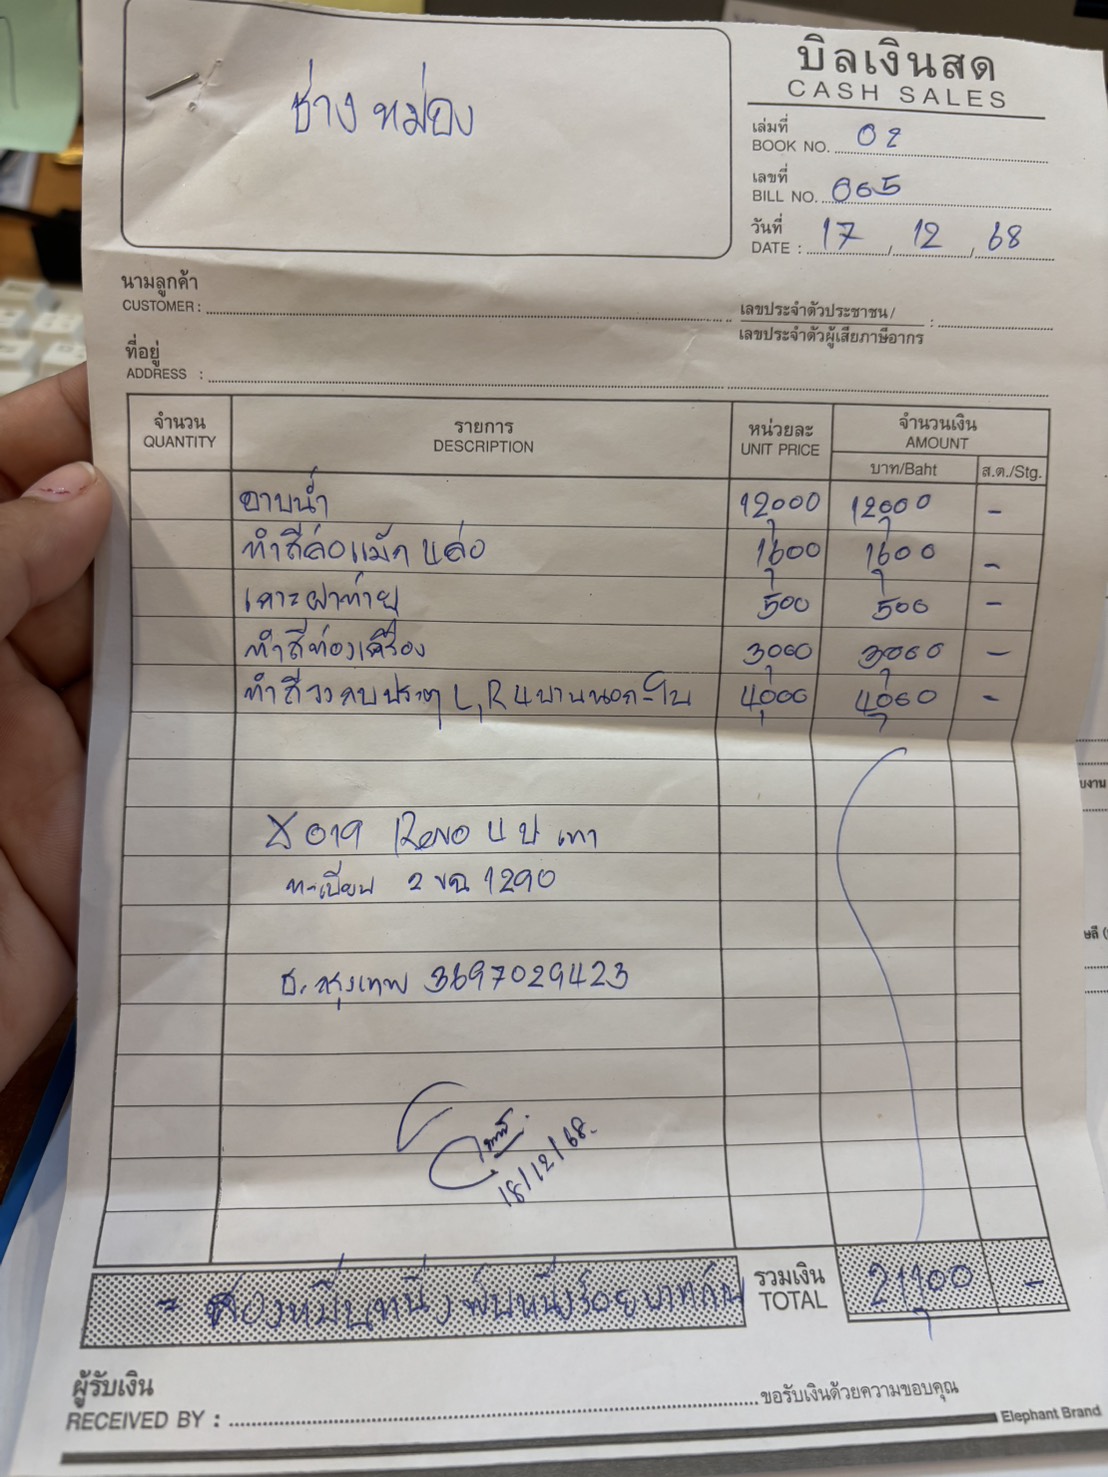 ช่าง หม่อง
บิลเงินสด
CASH SALES
เล่มที่
BOOK NO. 02
เลขที่
BILL NO. 065
วันที่
DATE : 17 / 12 / 68
นามลูกค้า
CUSTOMER :
เลขประจำตัวประชาชน /
เลขประจำตัวผู้เสียภาษีอากร :
ที่อยู่
ADDRESS :
จำนวน รายการ หน่วยละ จำนวนเงิน
QUANTITY DESCRIPTION UNIT PRICE AMOUNT
บาท/Baht ส.ต./Stg.
อาบน้ำ 12,000 12,000 -
ทำสีล้อแม็ก 4 ล้อ 1,600 1,600 -
เคาะฝาท้าย 500 500 -
ทำสีห้องเครื่อง 3,000 3,000 -
ทำสีวงกบประตู L,R 4 บานนอก-ใน 4,000 4,000 -
X019 Revo 4 ป เทา
ทะเบียน 2 ขฉ 1290
ธ.กรุงเทพ 3697029423
18/12/68.
= สองหมื่นหนึ่งพันหนึ่งร้อยบาทถ้วน
รวมเงิน
TOTAL 21,100 -
ผู้รับเงิน
RECEIVED BY :
ขอรับเงินด้วยความขอบคุณ
Elephant Brand